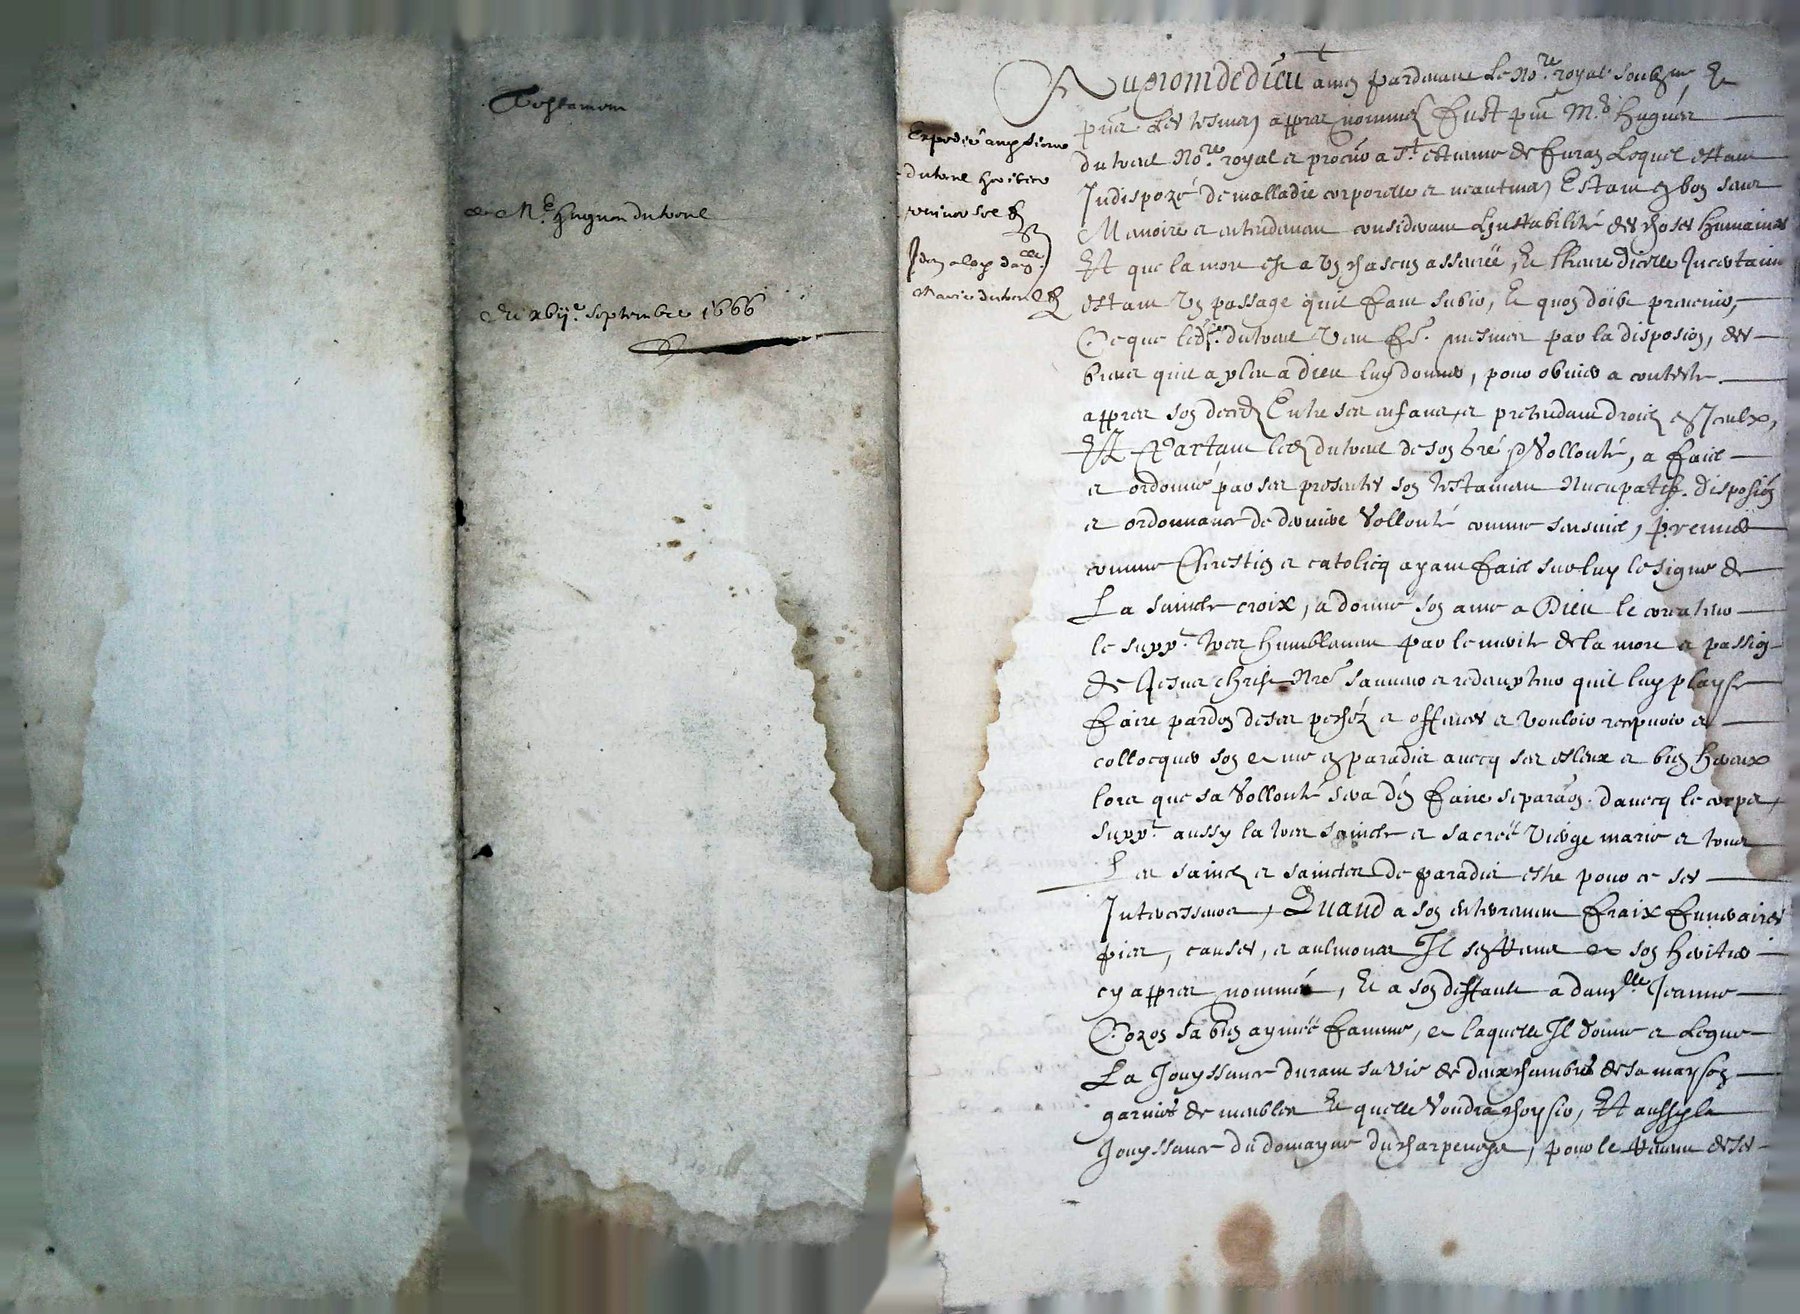 Testament
de Me hugues dutreul
Du xvije septembre 1666
Expedié au sieur
dutreul heritier
universel
Idem a lad dalle
Marie dutreul
Au nom de dieu amen pardevant le Nore royal soubzne et
pnts les tesmoins appres nommez fust pnt Me hugues
dutreul Nore royal et procur a St estienne de furan Lequel estant
Indisposé de malladie corporelle et neantmoins Estant en bon sens
Memoire et entendement considerant Linstabilité des choses humaines
Et que la mort est a un chascun asseuree, Et lheure dicelle Incertaine
estant un passage quil faut subir, Et quon doibt prevenir,
Ce que led sr dutreul veut fe mesmes par la disposion, des
biens quil a pleu a dieu luy donner, pour obvier a conteste
appres son deces Entre ses enfans, et pretendant droict en Iceulx,
Et Partant led dutreul de son gré et Vollonté, a faict
et ordonné par ses presentes son testament Nucupatif. disposion
et ordonnance de derniere Vollonté comme sensuict, premier
comme Chrestien et catolicq ayant faict sur luy le signe de
La saincte croix, a donné son ame a Dieu le createur
le suppt tres humblement par le merite de la mort et passion
de Jesus christ Nre sauveur et redempteur quil luy playse
faire pardon de ses pechéz et offences et vouloir recepvoir et
collocquer son ame en paradis avecq ses esleux et bien heureux
lors que sa Vollonté sera den faire separaon davecq le corps,
suppt aussy la tres saincte et sacrée vierge marie et tous
Les sainctz et sainctes de paradis estre pour ce ses
Intercesseurs, Quand a son enterrement fraix funeraires
pies, causes, et aulmones Il sen remet a son heritier
cy appres nommé, Et a son deffault a damlle Jeanne
Cozon sa bien aymée famme, a laquelle Il donne et Legue
La Jouyssance durant sa vie de deux chambres de sa mayson
garnies de meubles Et quelle voudra choysir, Et aussy la
Jouyssance du domayne du charpenege, pour le terme de ses